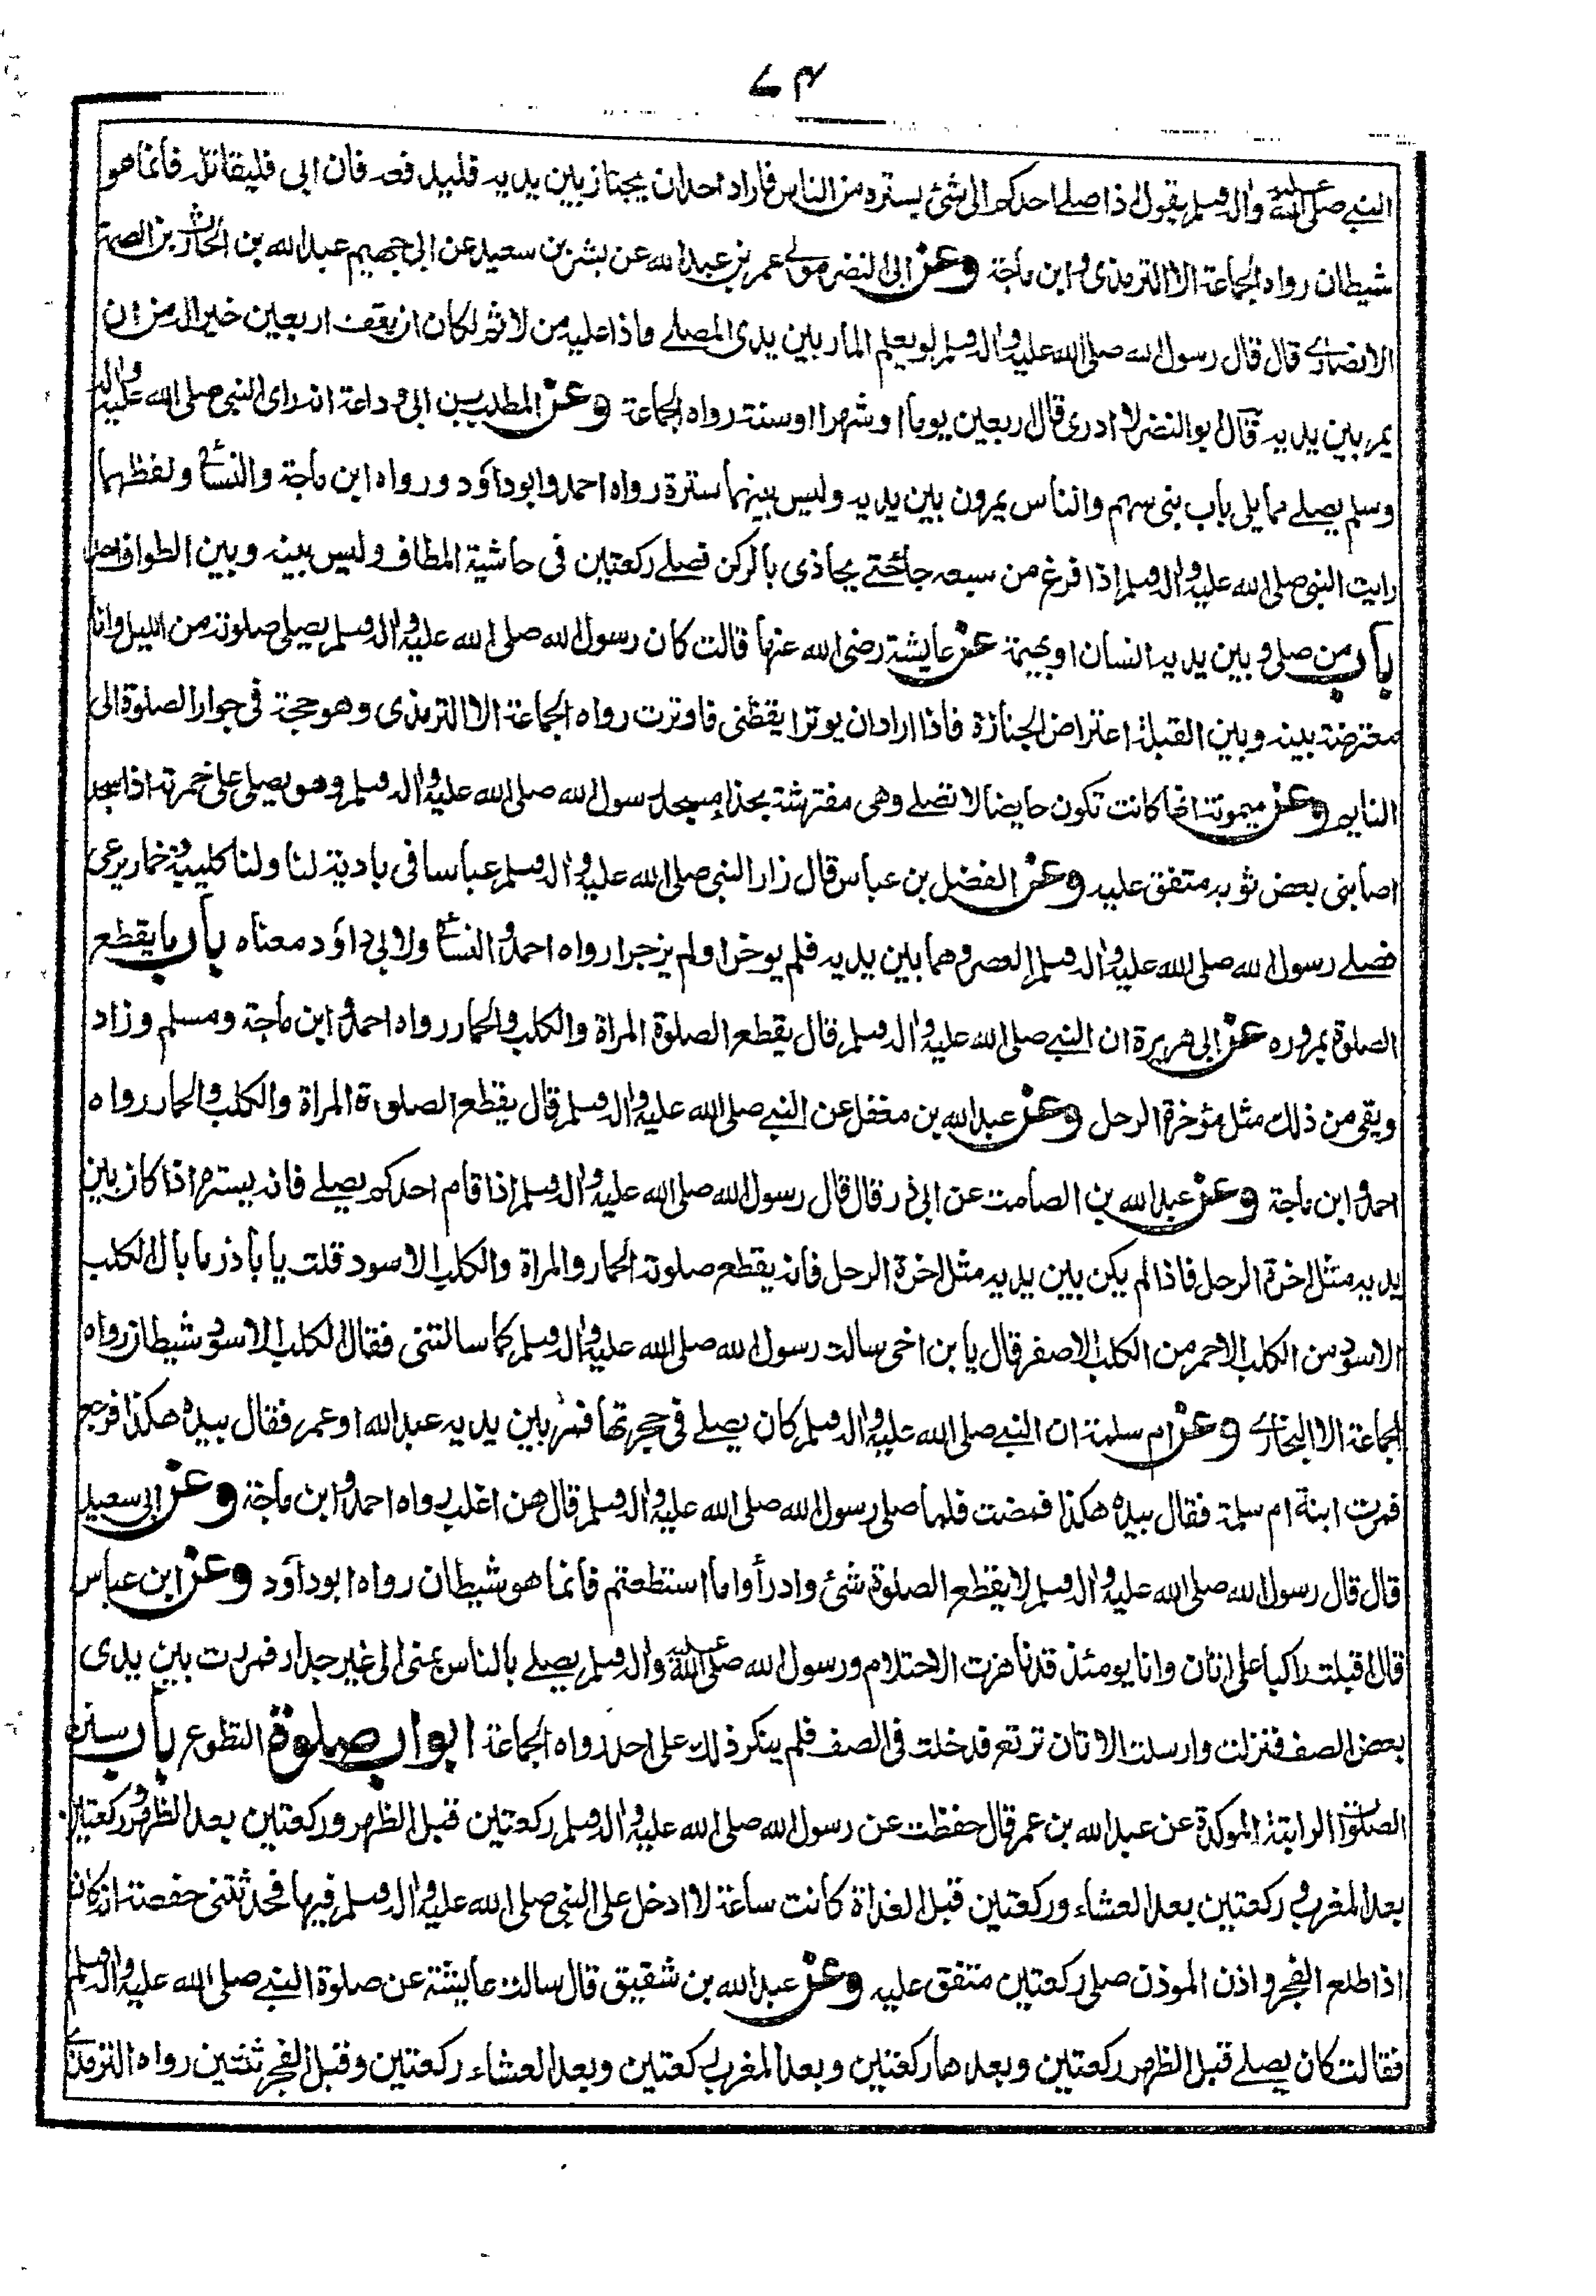 ٧٤
النبے صلى الله عليه واله وسلم يقول اذا صلے احدكم الى شئ يستره من الناس فاراد احد ان يجتاز بين يديه فليدفعه فان ابى فليقاتله فانما هو
شيطان رواه الجماعة الا الترمذى وابن ماجة وعن ابى النضر مولے عمر بن عبد الله عن بشر بن سعيد عن ابى جهيم عبد الله بن الحارث بن الصمة
الانصارے قال قال رسول الله صلى الله عليه واله وسلم لو يعلم المار بين يدى المصلے ماذا عليه من الاثم لكان ان يقف اربعين خير اله من ان
يمر بين يديه قال ابو النضر لا ادرى قال اربعين يوما او شهرا او سنة رواه الجماعة وعن المطلب بن ابى وداعة انه راى النبى صلى الله عليه واله
وسلم يصلے مما يلى باب بنى سهم والناس يمرون بين يديه وليس بينهما سترة رواه احمد وابو داؤد ورواه ابن ماجة والنسائے ولفظهما
رايت النبى صلى الله عليه واله وسلم اذا فرغ من سبعه جاء حتے يحاذى بالركن فصلے ركعتين فى حاشية المطاف وليس بينه وبين الطواف احد
باب من صلى وبين يديه انسان او بهيمة عن عايشة رضى الله عنها قالت كان رسول الله صلى الله عليه واله وسلم يصلى صلوته من الليل وانا
معترضة بينه وبين القبلة اعتراض الجنازة فاذا اراد ان يوتر ايقظنى فاوترت رواه الجماعة الا الترمذى وهو حجة فى جواز الصلوة الى
النايم وعن ميمونة انها كانت تكون حايضا لا تصلے وهى مفترشة بحذاء مسجد رسول الله صلى الله عليه واله وسلم وهو يصلى على خمرته اذا سجد
اصابنى بعض ثوبه متفق عليه وعن الفضل بن عباس قال زار النبى صلى الله عليه واله وسلم عباسا فى بادية لنا ولنا كليبة وحمار يرعى
فصلے رسول الله صلى الله عليه واله وسلم العصر وهما بين يديه فلم يوخرا ولم يزجرا رواه احمد والنسائے ولابى داؤد معناه باب ما يقطع
الصلوة بمروره عن ابى هريرة ان النبے صلى الله عليه واله وسلم قال يقطع الصلوة المراة والكلب والحمار رواه احمد وابن ماجة ومسلم وزاد
ويقى من ذلك مثل مؤخرة الرحل وعن عبد الله بن مغفل عن النبے صلى الله عليه واله وسلم قال يقطع الصلوة المراة والكلب والحمار رواه
احمد وابن ماجة وعن عبد الله بن الصامت عن ابى ذر قال قال رسول الله صلى الله عليه واله وسلم اذا قام احدكم يصلے فانه يستره اذا كان بين
يديه مثل اخرة الرحل فاذا لم يكن بين يديه مثل اخرة الرحل فانه يقطع صلوته الحمار والمراة والكلب الاسود قلت يا باذر ما بال الكلب
الاسود من الكلب الاحمر من الكلب الاصفر قال يا بن اخى سالت رسول الله صلى الله عليه واله وسلم كما سالتنى فقال الكلب الاسود شيطان رواه
الجماعة الا البخارے وعن ام سلمة ان النبے صلى الله عليه واله وسلم كان يصلے فى حجرتها فمر بين يديه عبد الله او عمر فقال بيده هكذا فرجع
فمرت ابنة ام سلمة فقال بيده هكذا فمضت فلما صلى رسول الله صلى الله عليه واله وسلم قال هن اغلب رواه احمد وابن ماجة وعن ابى سعيد
قال قال رسول الله صلى الله عليه واله وسلم لا يقطع الصلوة شئ وادرأوا ما استطعتم فانما هو شيطان رواه ابو داؤد وعن ابن عباس
قال اقبلت راكبا على اتان وانا يومئذ قد ناهزت الاحتلام ورسول الله صلى الله عليه واله وسلم يصلے بالناس بمنى الى غير جدار فمررت بين يدى
بعض الصف فنزلت وارسلت الاتان ترتع فدخلت فى الصف فلم ينكر ذلك على احد رواه الجماعة ابواب صلوة التطوع باب سنن
الصلوة الراتبة الموكدة عن عبد الله بن عمر قال حفظت عن رسول الله صلى الله عليه واله وسلم ركعتين قبل الظهر وركعتين بعد الظهر وركعتين
بعد المغرب وركعتين بعد العشاء وركعتين قبل الغداة كانت ساعة لا ادخل على النبى صلى الله عليه واله وسلم فيها فحدثتنى حفصة انه كان
اذا طلع الفجر واذن الموذن صلى ركعتين متفق عليه وعن عبد الله بن شقيق قال سالت عايشة عن صلوة النبے صلى الله عليه واله وسلم
فقالت كان يصلے قبل الظهر ركعتين وبعدها ركعتين وبعد المغرب ركعتين وبعد العشاء ركعتين وقبل الفجر ثنتين رواه الترمذے